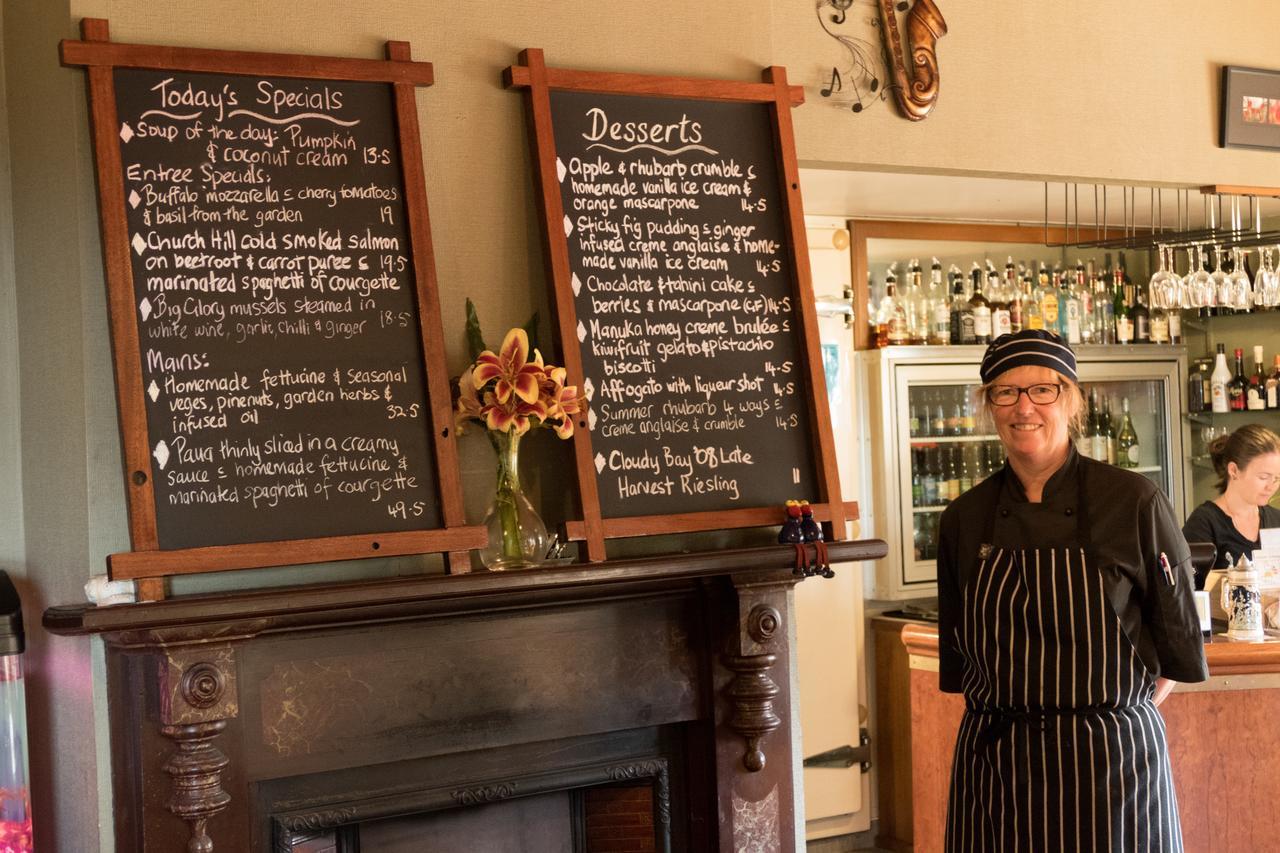 Today's Specials
Soup of the day: Pumpkin
& coconut cream 13.5
Entree Specials:
Buffalo mozzarella c cherry tomatoes
& basil from the garden 19
Church Hill cold smoked salmon
on beetroot & carrot puree c 19.5
marinated spaghetti of courgette
Big Glory mussels steamed in
white wine, garlic, chilli & ginger 18.5
Mains:
Homemade fettucine & seasonal
veges, pinenuts, garden herbs &
infused oil 32.5
Paua thinly sliced in a creamy
sauce c homemade fettucine &
marinated spaghetti of courgette
49.5
Desserts
Apple & rhubarb crumble c
homemade vanilla ice cream &
orange mascarpone 14.5
Sticky fig pudding c ginger
infused creme anglaise & home-
made vanilla ice cream 14.5
Chocolate & tahini cake c
berries & mascarpone (GF) 14.5
Manuka honey creme brulée c
kiwifruit gelato & pistachio
biscotti 14.5
Affogato with liqueur shot 14.5
Summer rhubarb 4 ways c
creme anglaise & crumble 14.5
Cloudy Bay '08 Late
Harvest Riesling 11